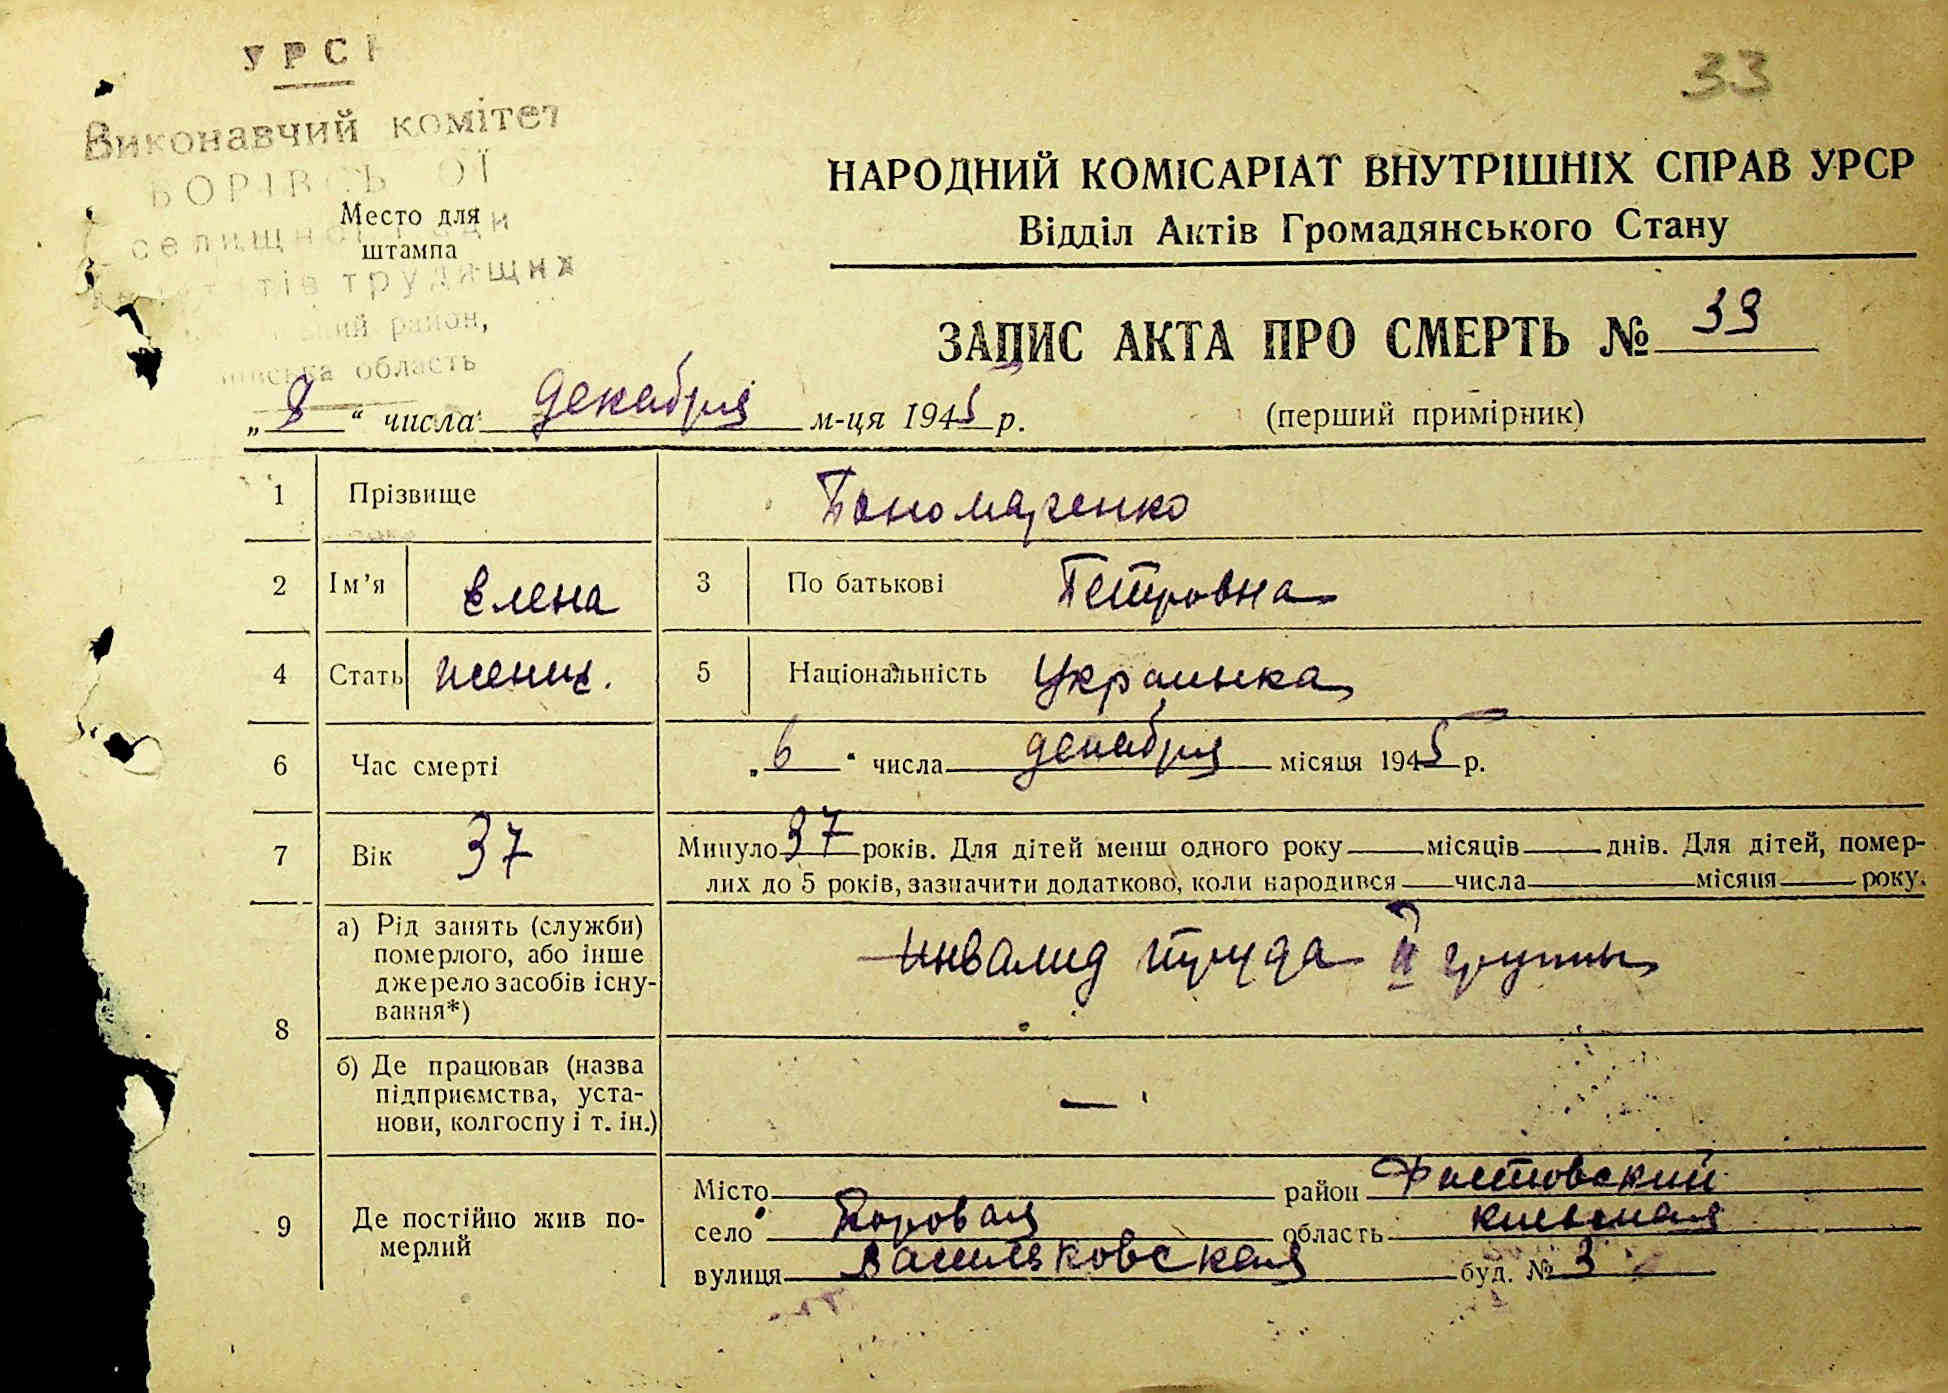 УРСР
33
Виконавчий комітет
НАРОДНИЙ КОМІСАРІАТ ВНУТРІШНІХ СПРАВ УРСР
Место для
штампа
Відділ Актів Громадянського Стану
селищної ради
трудящих
район,
область
ЗАПИС АКТА ПРО СМЕРТЬ № 33
„8“ числа декабря м-ця 1945 р.
(перший примірник)
1 Прізвище Пономаренко
2 Ім'я Елена 3 По батькові Петровна
4 Стать женщ. 5 Національність Украинка
6 Час смерті „6“ числа декабря місяця 1945 р.
7 Вік 37 Минуло 37 років. Для дітей менш одного року місяців днів. Для дітей, помер-
лих до 5 років, зазначити додатково, коли народився числа місяця року.
8 а) Рід занять (служби)
померлого, або інше
джерело засобів існу-
вання*)
Инвалид труда II группы
б) Де працював (назва
підприємства, уста-
нови, колгоспу і т. ін.)
—
9 Де постійно жив по-
мерлий
Місто район Фастовский
село Боровая область Киевская
вулиця Васильковская буд. № 3